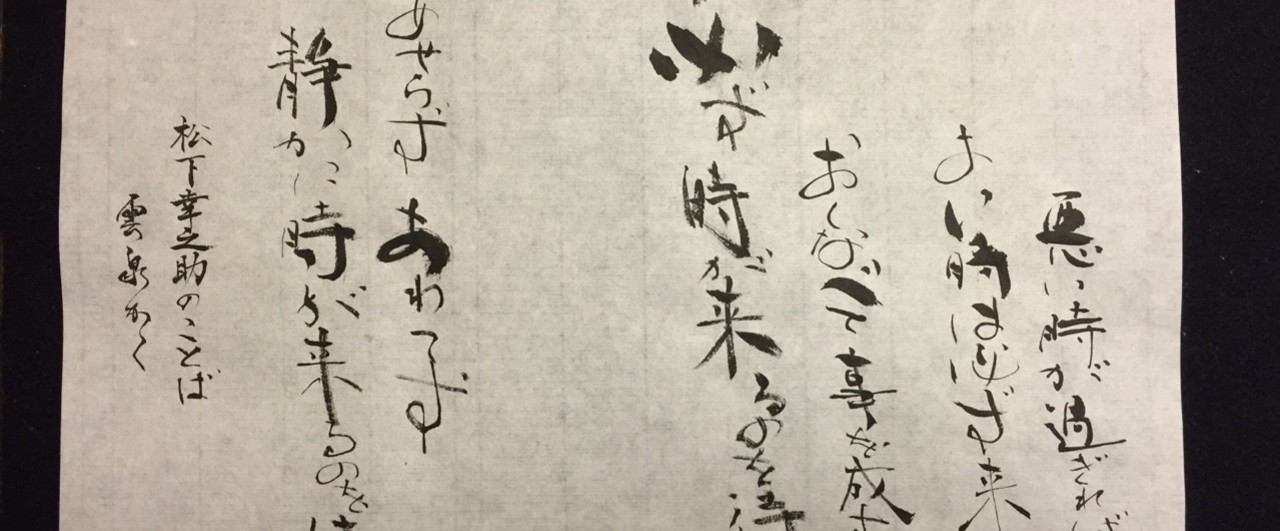 悪い時が過ぎれば
よい時は必ず来
おしなべて事を成す
必ず時が来るのを待
あせらずあわてず
静かに時が来るのを待
松下幸之助のことば
雲泉かく